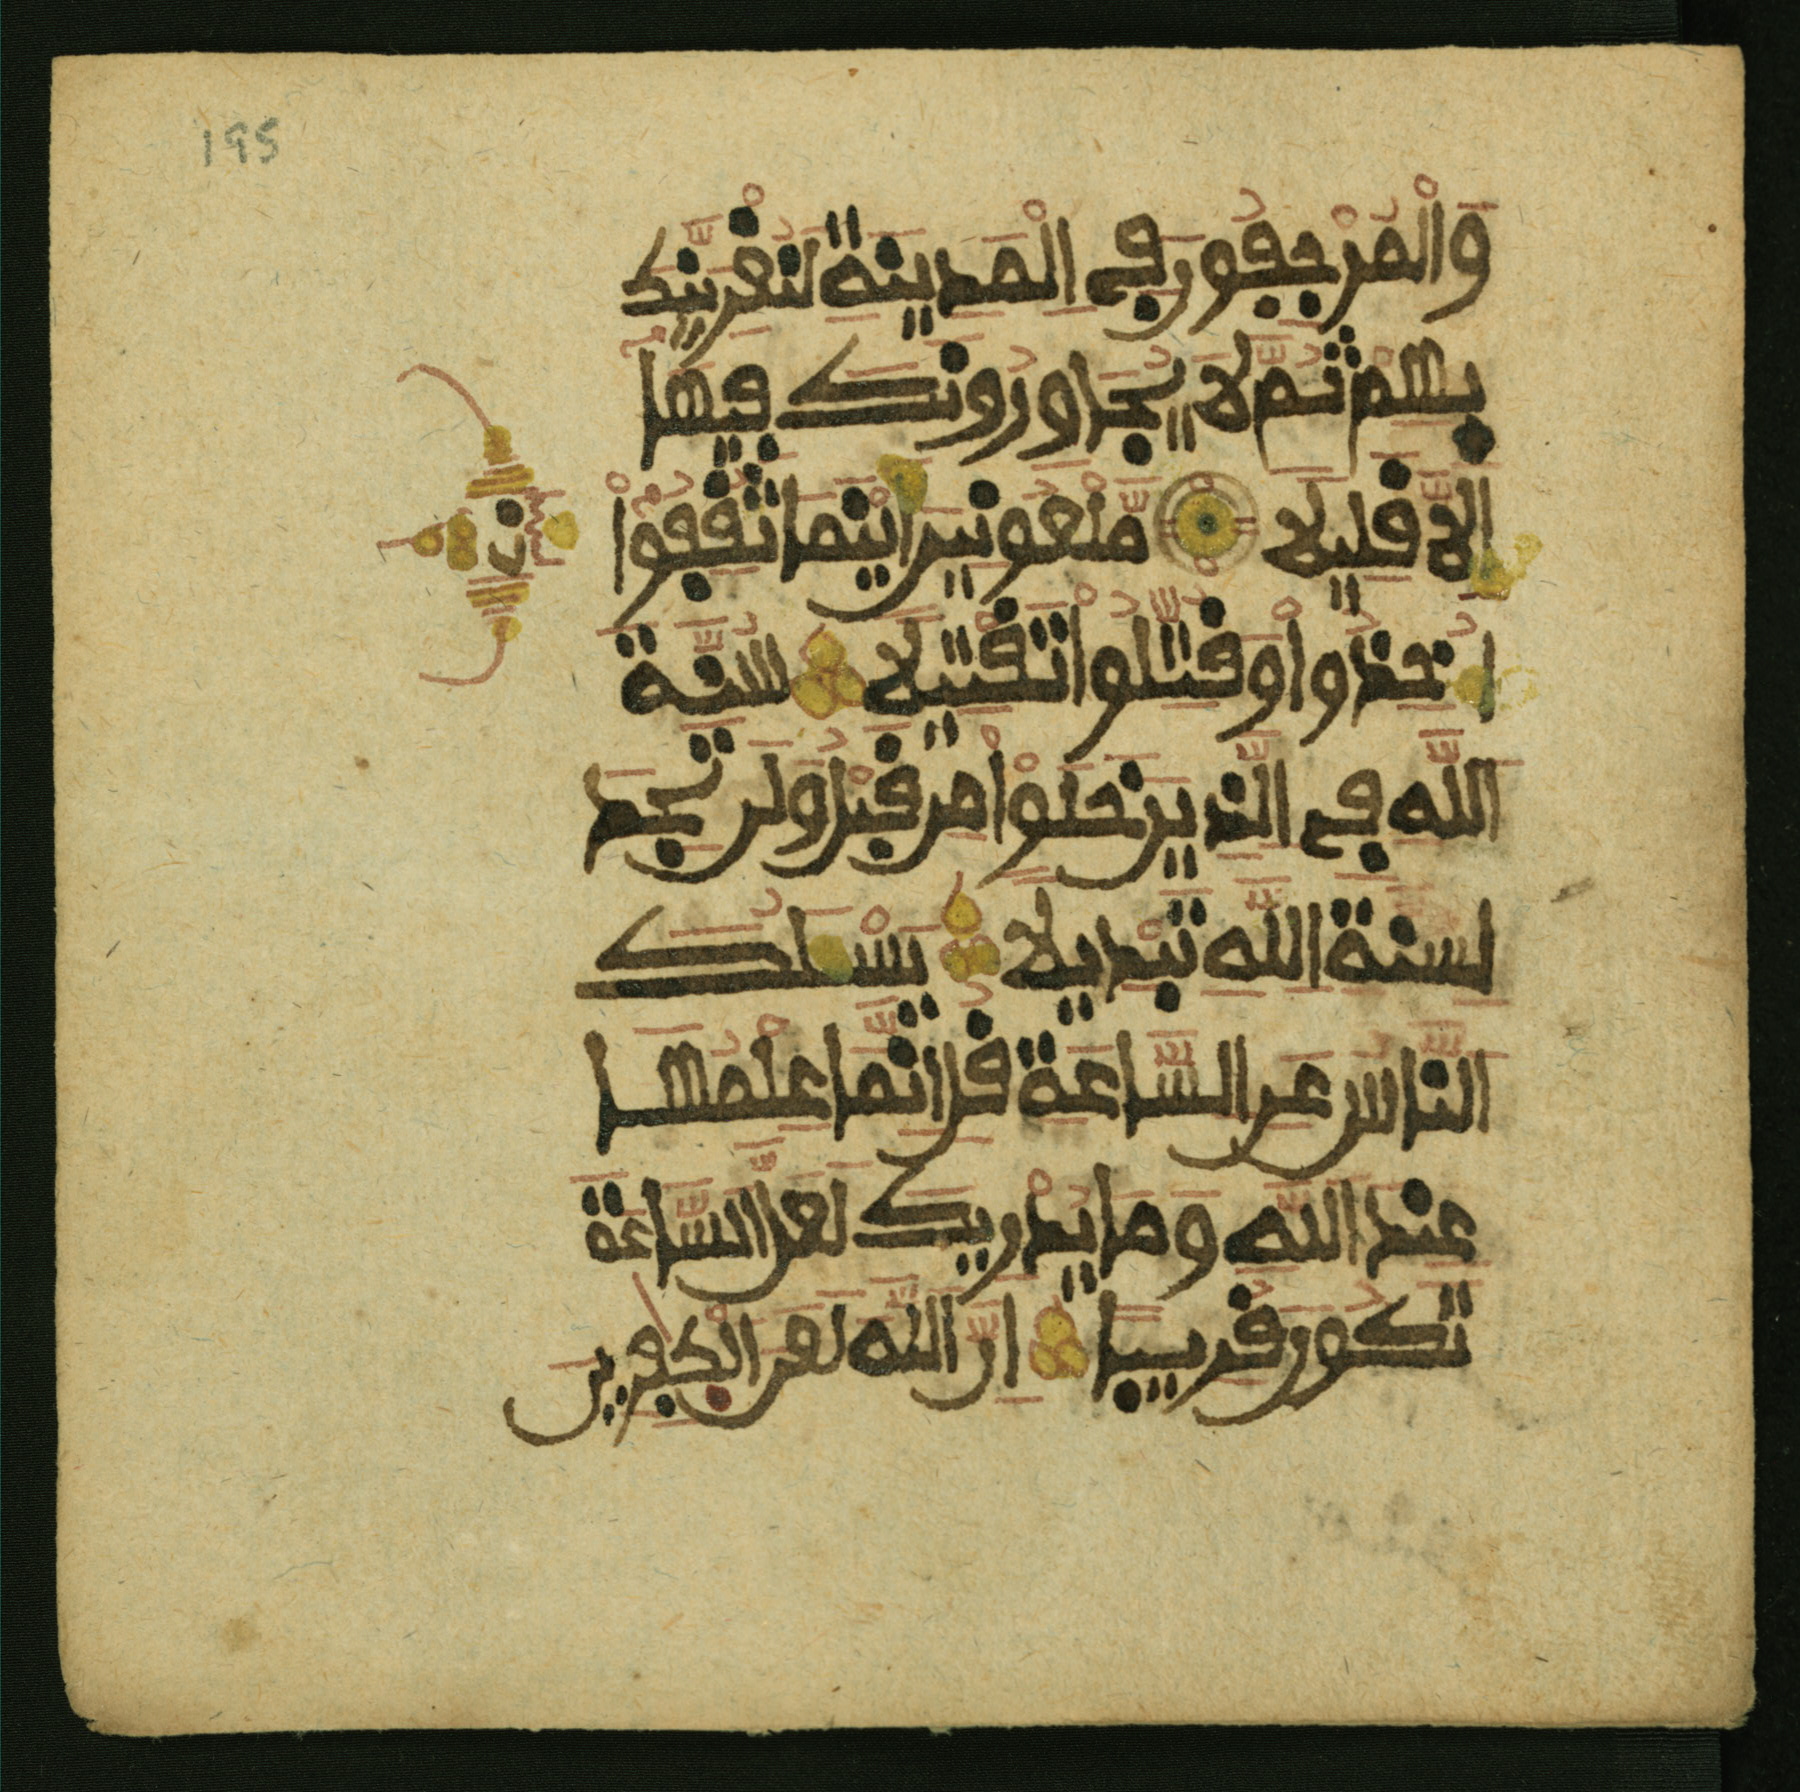 195
وَالْمُرْجِفُونَ فِى الْمَدِينَةِ لَنُغْرِيَنَّكَ
بِهِمْ ثُمَّ لَا يُجَاوِرُونَكَ فِيهَا
إِلَّا قَلِيلًا مَّلْعُونِينَ أَيْنَمَا ثُقِفُوا
ن
أُخِذُوا وَقُتِّلُوا تَقْتِيلًا سُنَّةَ
اللَّهِ فِى الَّذِينَ خَلَوْا مِن قَبْلُ وَلَن تَجِدَ
لِسُنَّةِ اللَّهِ تَبْدِيلًا يَسْـَٔلُكَ
النَّاسُ عَنِ السَّاعَةِ قُلْ إِنَّمَا عِلْمُهَا
عِندَ اللَّهِ وَمَا يُدْرِيكَ لَعَلَّ السَّاعَةَ
تَكُونُ قَرِيبًا إِنَّ اللَّهَ لَعَنَ الْكَٰفِرِينَ